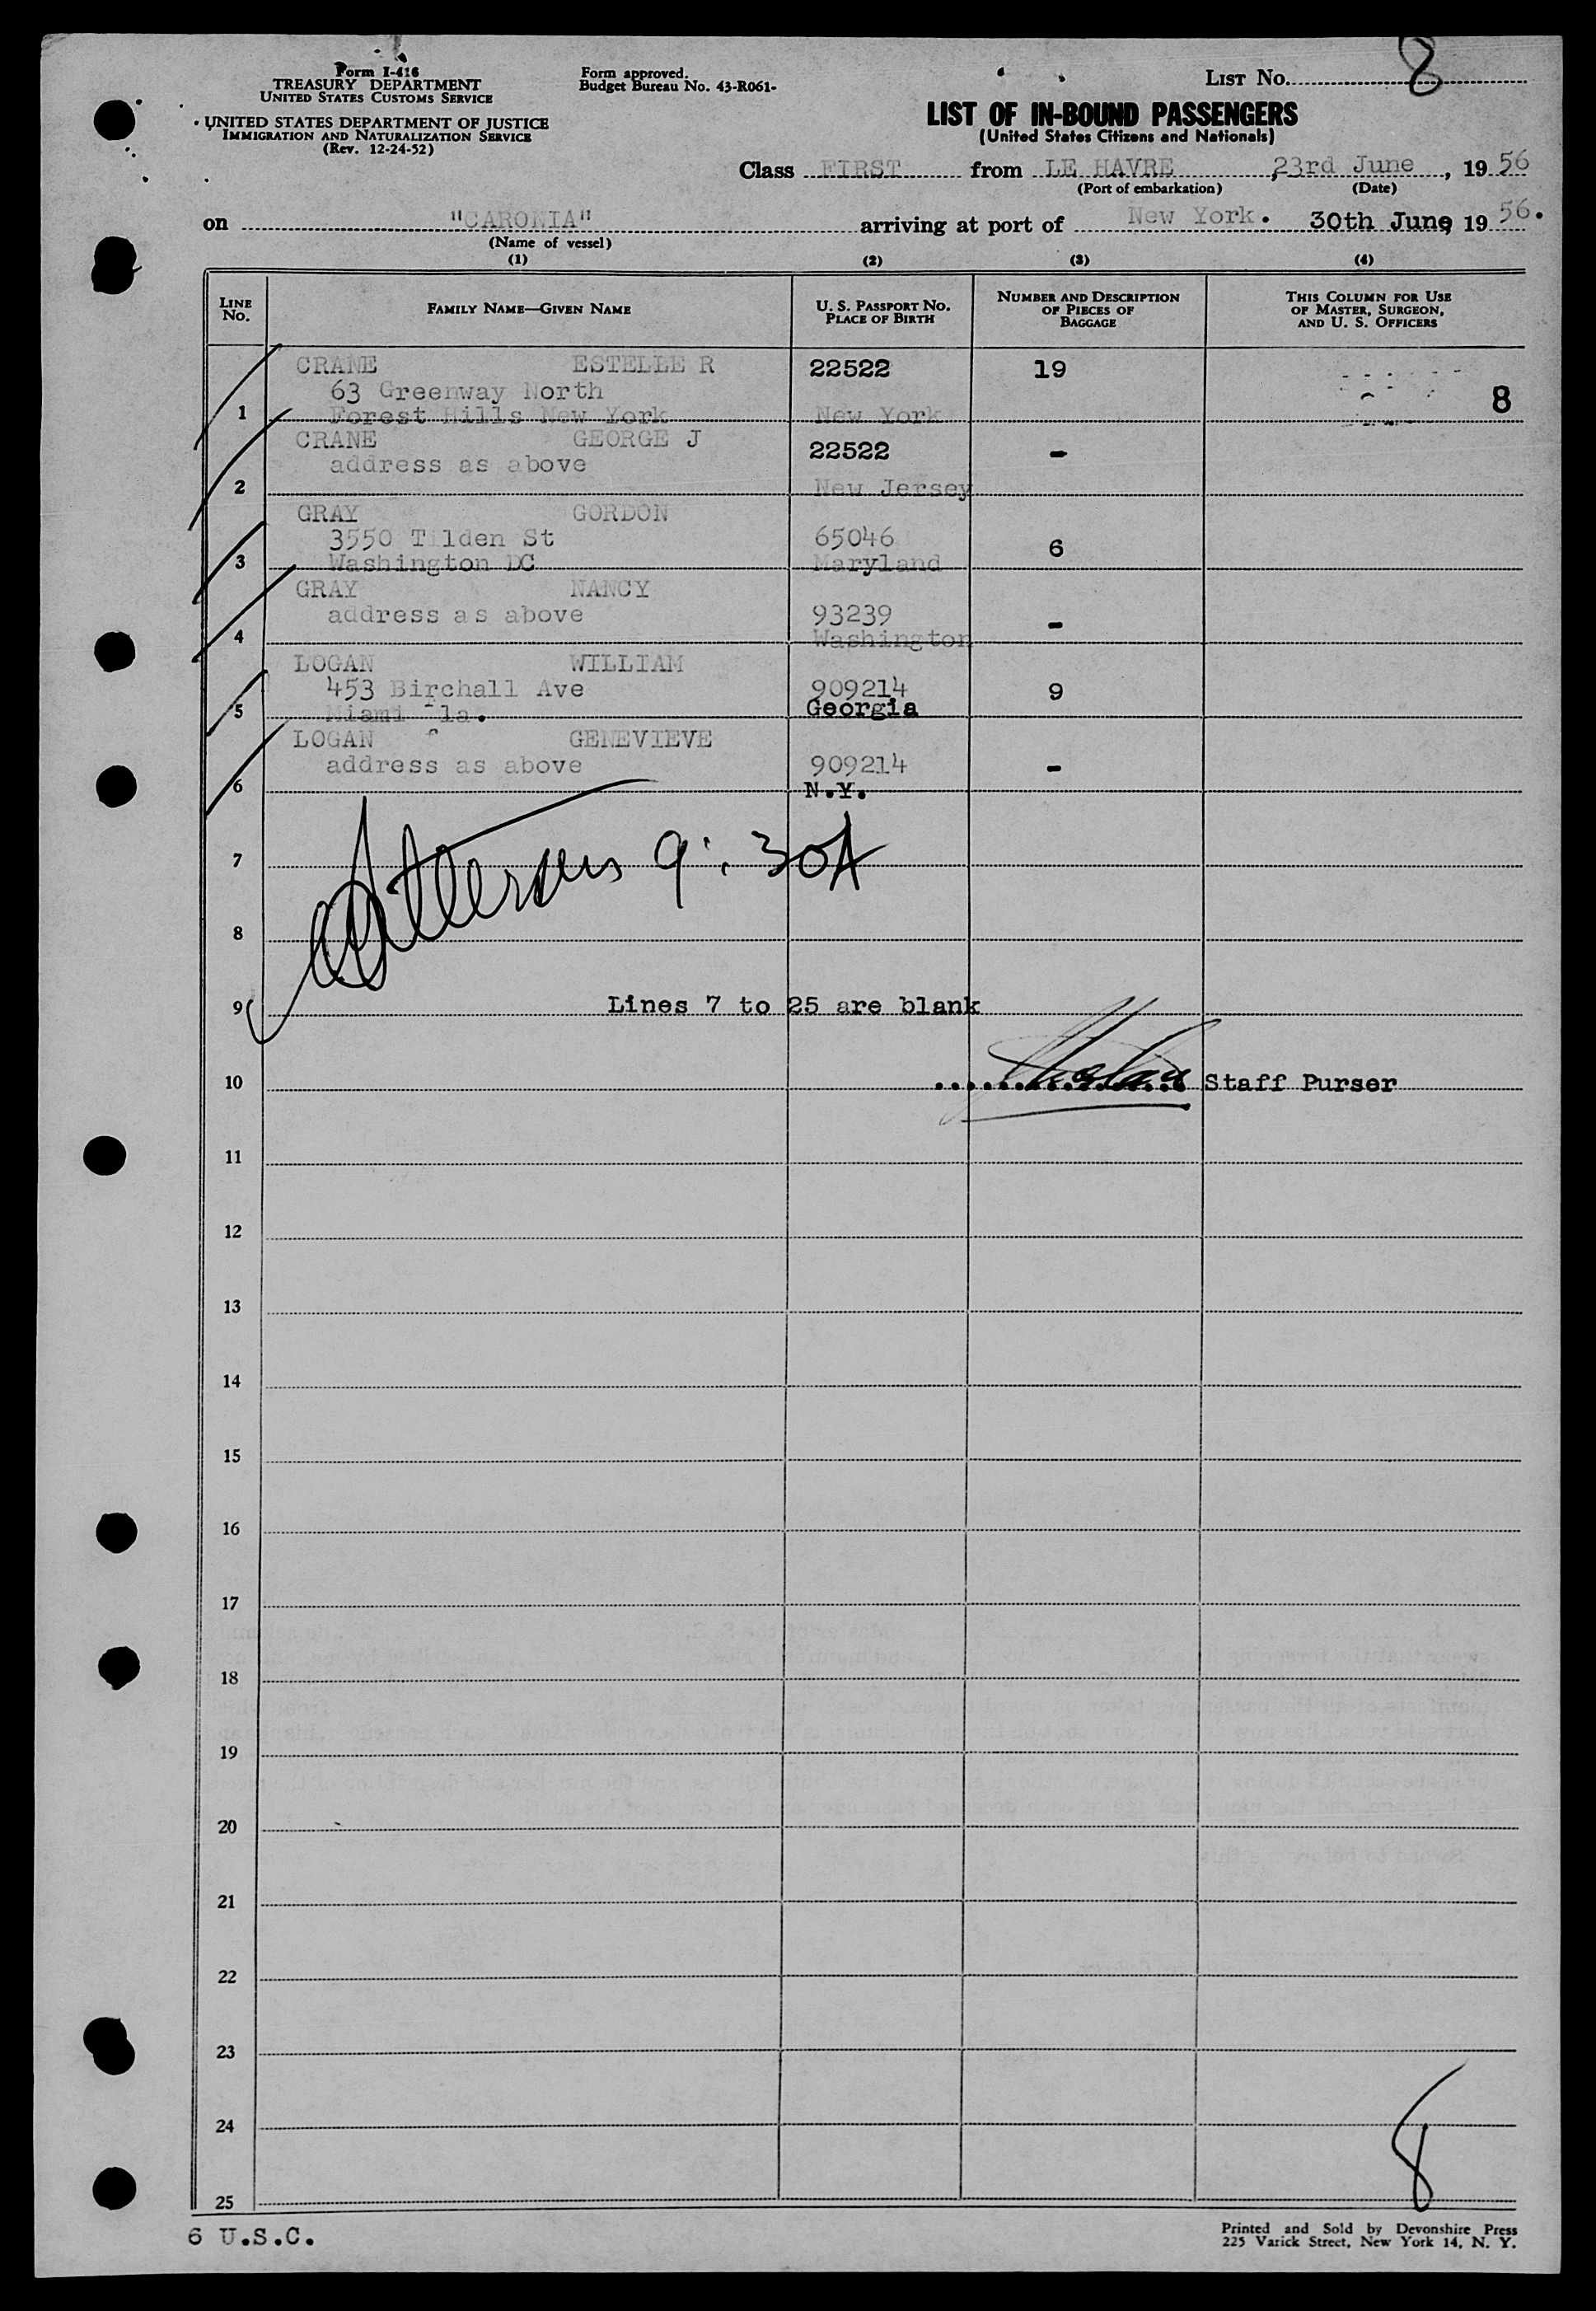 Form I-416
TREASURY DEPARTMENT
UNITED STATES CUSTOMS SERVICE
UNITED STATES DEPARTMENT OF JUSTICE
IMMIGRATION AND NATURALIZATION SERVICE
(Rev. 12-24-52)
Form approved.
Budget Bureau No. 43-R061-
LIST No. 8
LIST OF IN-BOUND PASSENGERS
(United States Citizens and Nationals)
Class FIRST from LE HAVRE, 23rd June, 1956
(Port of embarkation) (Date)
on "CARONIA" arriving at port of New York. 30th June, 1956.
(Name of vessel)
(1) (2) (3) (4)
LINE No. FAMILY NAME—GIVEN NAME U. S. PASSPORT No. PLACE OF BIRTH NUMBER AND DESCRIPTION OF PIECES OF BAGGAGE THIS COLUMN FOR USE OF MASTER, SURGEON, AND U. S. OFFICERS
CRANE ESTELLE R 22522 19
63 Greenway North 8
1 Forest Hills New York New York
CRANE GEORGE J 22522 -
address as above
2 New Jersey
GRAY GORDON
3550 Tilden St 65046 6
3 Washington DC Maryland
GRAY NANCY
address as above 93239 -
4 Washington
LOGAN WILLIAM
453 Birchall Ave 909214 9
5 Miami Fla. Georgia
LOGAN GENEVIEVE
address as above 909214 -
6 N.Y.
7 9:30A
8
9 Lines 7 to 25 are blank
10 Staff Purser
11
12
13
14
15
16
17
18
19
20
21
22
23
24 8
25
6 U.S.C.
Printed and Sold by Devonshire Press
225 Varick Street, New York 14, N. Y.